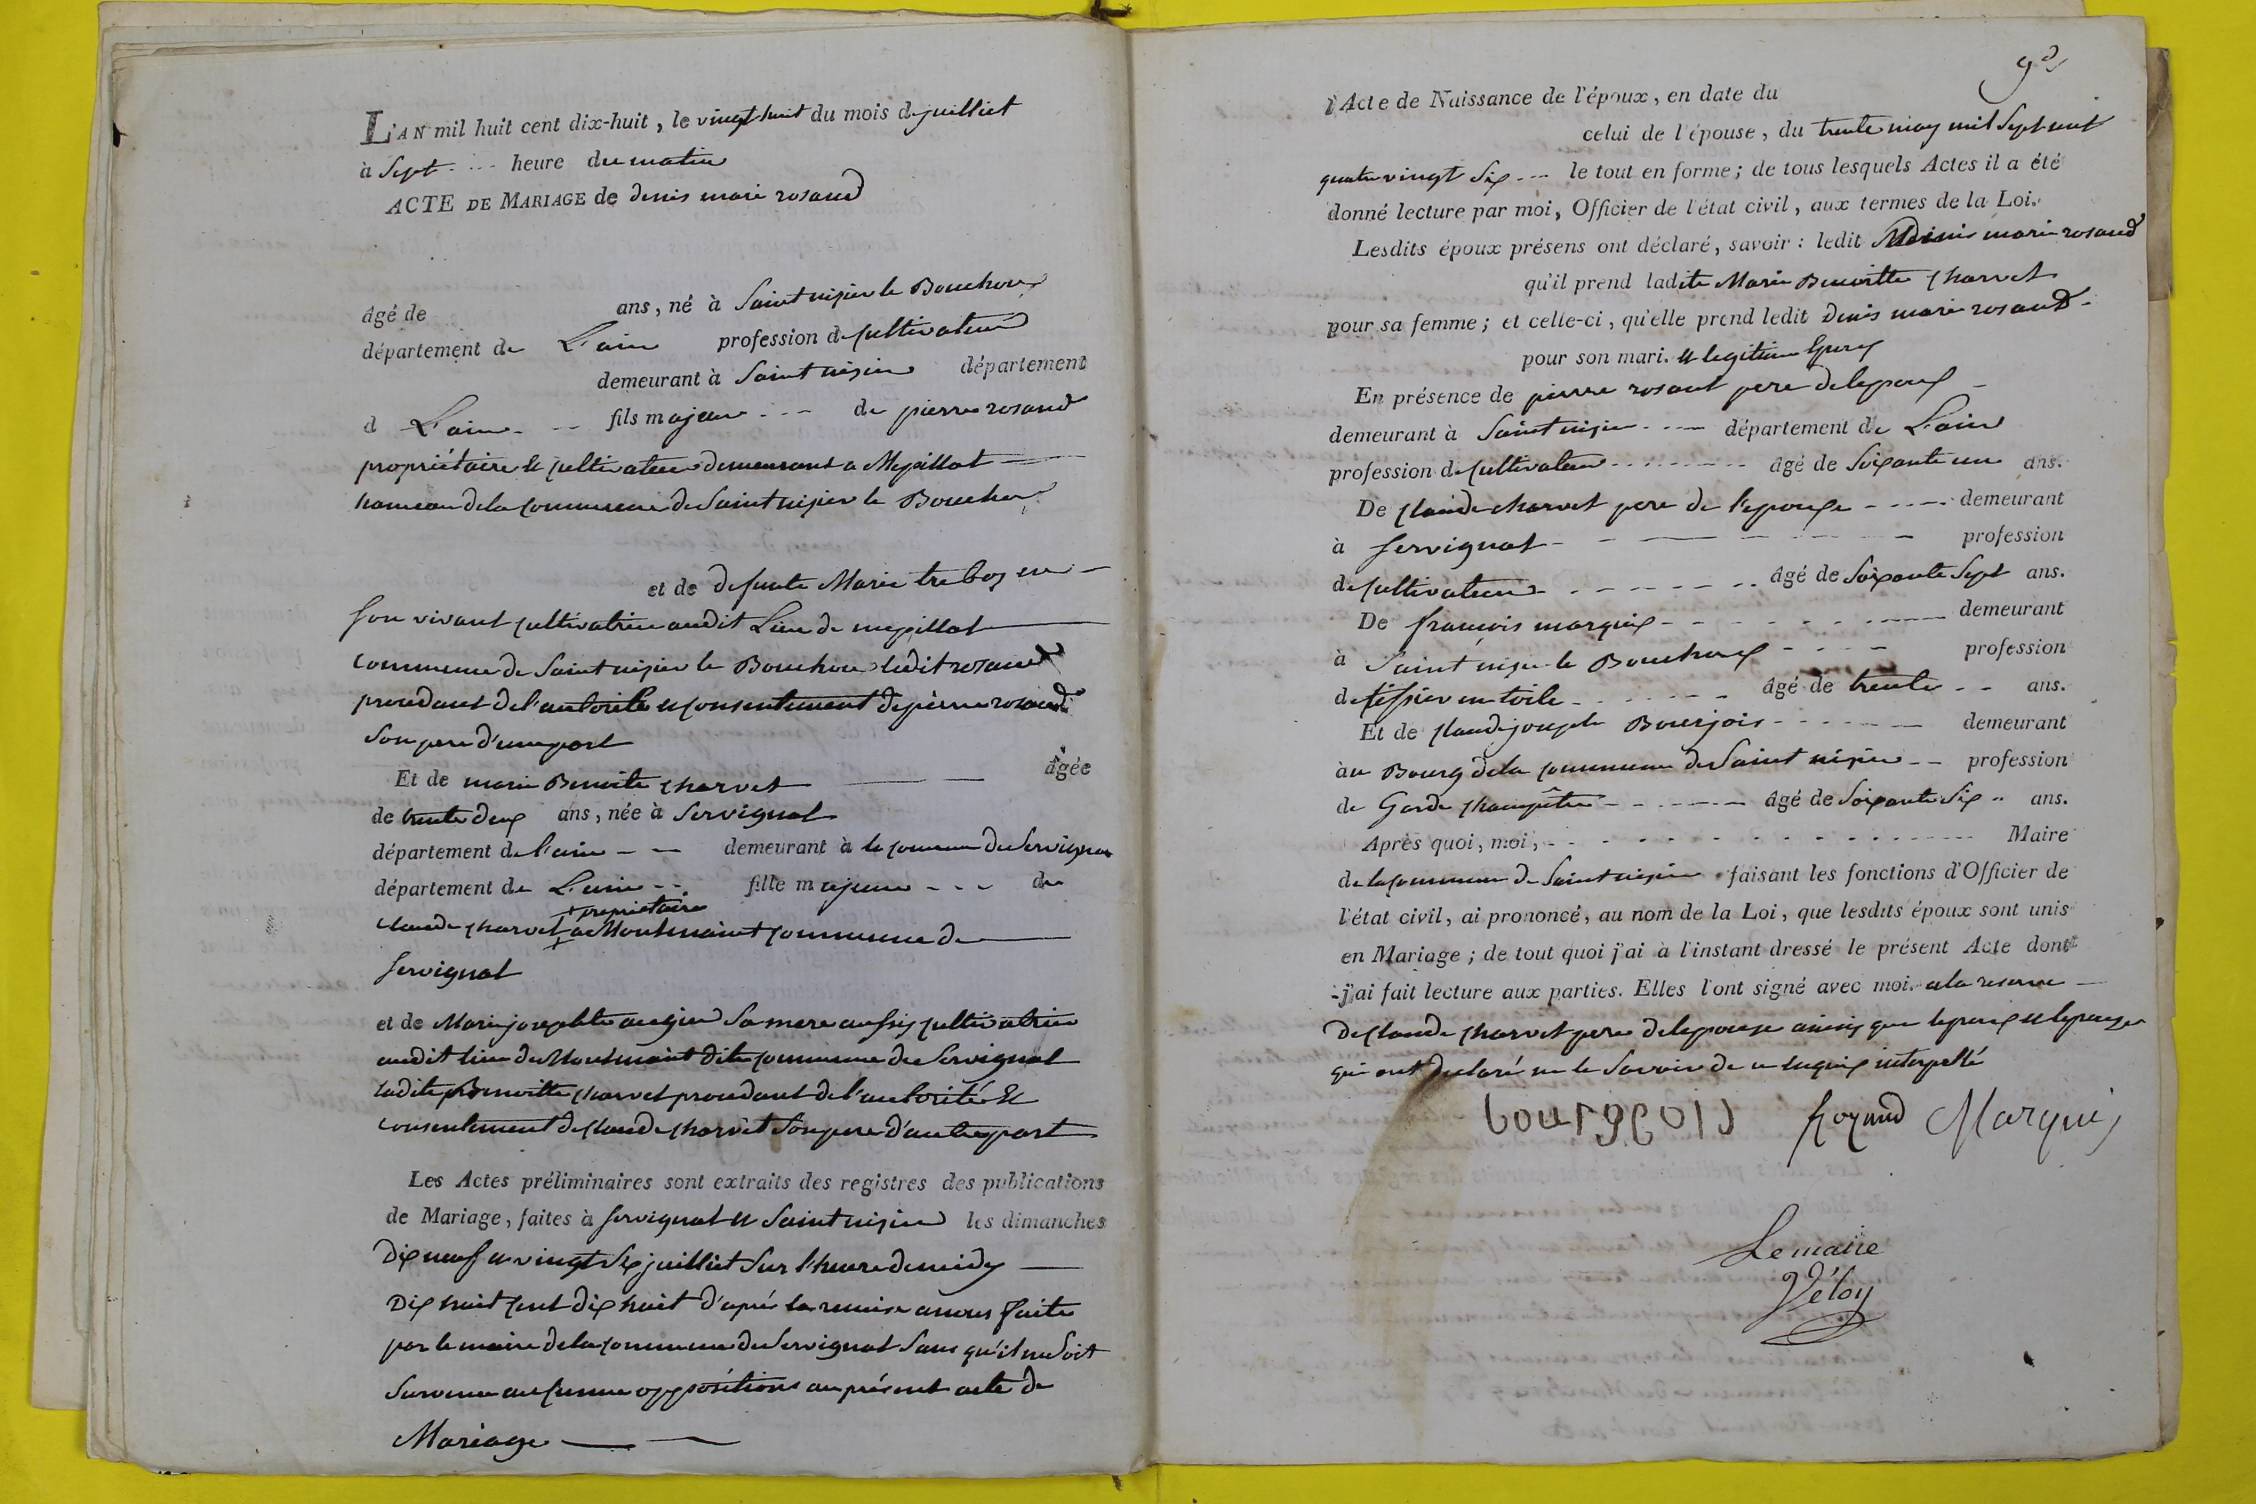 L'AN mil huit cent dix-huit, le vingt huit du mois de juilliet
à Sept heure du matin
ACTE DE MARIAGE de denis marie rosand
âgé de ans, né à Saint nisier le Bouchoux
département de L'ain profession de cultivateur
demeurant à Saint nisier département
d L'ain fils majeur de pierre rosand
propriétaire et cultivateur demeurant a Mépillat
hameau de la commune de Saint nisier le Bouchoux
et de defunte Marie treboz en
son vivant cultivatrice audit Lieu de mepillat
commune de Saint nisier le Bouchoux ledit rosand
procedant de l'autorité et consentement de pierre rosand
Son pere d'une part
Et de marie Benoite charvet âgée
de trente deux ans, née à Servignat
département de l'ain demeurant à la commune de Servignat
département de L'ain fille majeure de
+ propriétaire
claude charvet + a Montmaint commune de
servignat
et de Marie josephte Sa mere aussy cultivatrice
audit lieu de Montmaint dite commune de Servignat
ladite Benoitte charvet procedant de l'autorité et
consentement de claude charvet Son pere d'autre part
Les Actes préliminaires sont extraits des registres des publications
de Mariage, faites à servignat et Saint nisier les dimanches
Dix neuf et vingt Six juilliet Sur l'heure de midy
Dix huit cent dix huit d'après la remise a nous faite
par le maire de la commune de Servignat Sans qu'il ne Soit
Survenu aucunne oppositions au présent acte de
Mariage
l'Acte de Naissance de l'époux, en date du
celui de l'épouse, du trente may mil Sept cent
quatre vingt Six le tout en forme; de tous lesquels Actes il a été
donné lecture par moi, Officier de l'état civil, aux termes de la Loi.
Lesdits époux présens ont déclaré, savoir : ledit denis marie rosand
qu'il prend ladite Marie Benoitte charvet
pour sa femme; et celle-ci, qu'elle prend ledit Denis marie rosand
pour son mari. et legitime Epoux
En présence de pierre rosant pere de lepoux
demeurant à Saint nisier département de L'ain
profession de cultivateur âgé de Soixante un ans.
De claude charvet pere de l'epouse demeurant
à servignat profession
de cultivateur âgé de Soixante Sept ans.
De francois marquis demeurant
à Saint nisier le Bouchoux profession
de tissier en toile âgé de trente ans.
Et de claude joseph Bourjois demeurant
au Bourg de la commune de Saint nisier profession
de Garde champêtre âgé de Soixante Six ans.
Après quoi, moi, Maire
de la commune de Saint nisier faisant les fonctions d'Officier de
l'état civil, ai prononcé, au nom de la Loi, que lesdits époux sont unis
en Mariage; de tout quoi j'ai à l'instant dressé le présent Acte dont
j'ai fait lecture aux parties. Elles l'ont signé avec moi. a la reserve
De claude charvet pere de lepouse ainsy que lepoux et lepouse
qui ont declaré ne le Savoir de ce enquis interpellé
bourgeois Rozand Marquis
Le maire
Véloy